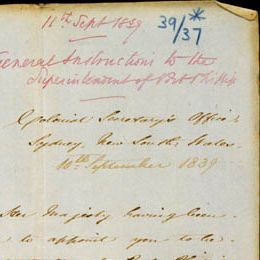 11th Sept 1839
39/37 *
General Instructions to the
Superintendent of Port Phillip
Colonial Secretary's Office
Sydney, New South Wales
10th September 1839
Her Majesty having been
to appoint you to be